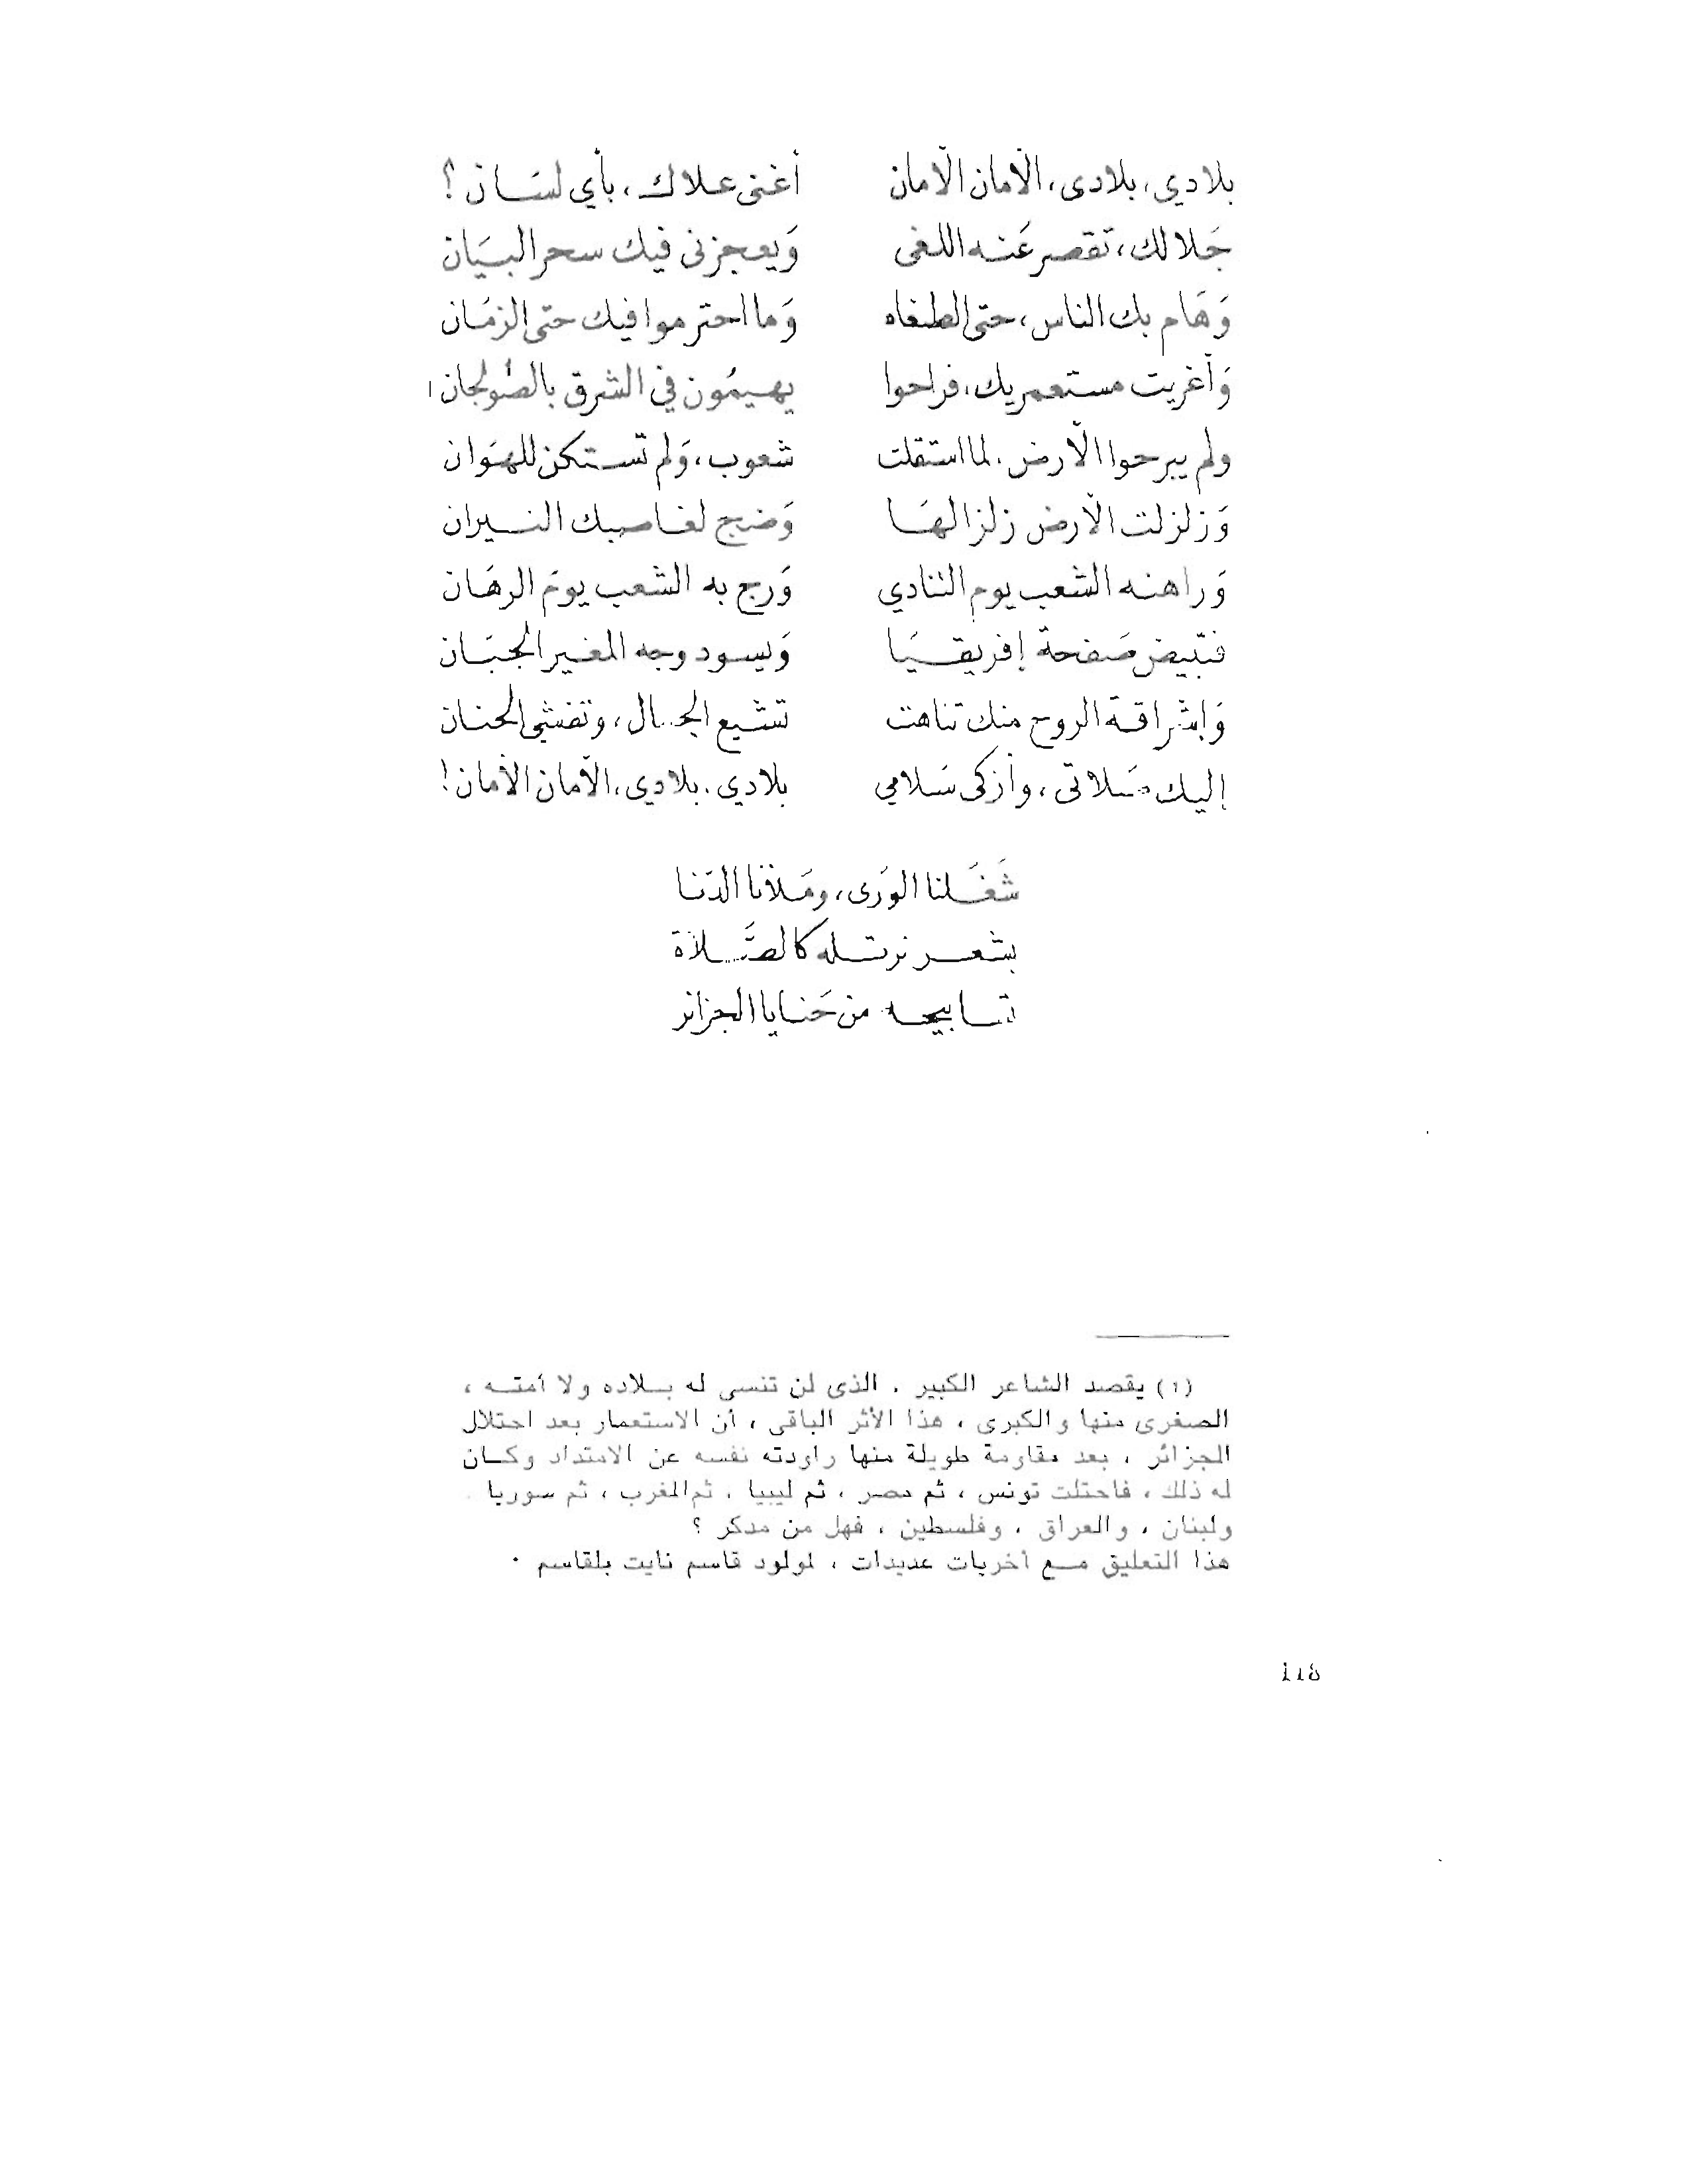 بلادي، بلادى، الأمان الأمان أغنى علاك، بأي لسَان ؟
جَلالك، تقصر عَنه اللغى وَيعجزنى فيك سحر البيَان
وَهَام بك الناس، حتى الطغاه وَما احترموا فيك حتى الزمَان
وَأغريت مستعمريك، فراحوا يهيمُون في الشرق بالصُولجان ١
ولم يبرحوا الأرض. لما استقلت شعوب، وَلم تستكن للهوَان
وَزلزلت الأرض زلزالهَا وَضج لغاصبك النيران
وَراهنه الشعب يوم التنادي وَرج به الشعب يومَ الرهَان
فتبيض صَفحة إفريقيَا وَيسود وجه المغير الجبَان
وَإشراقة الروح منك تناهت تشيع الجمال، وتفشى الحنان
إليك صَلاتى، وأزكى سَلامي بلادي. بلادي، الأمان الأمان !
شَغَلنا الورَى، ومَلأنا الدّنا
بشعر نرتله كالصَّلاة
تسابيحه من حَنايا الجزائر
(١) يقصد الشاعر الكبير ، الذى لن تنسى له بلاده ولا أمته ،
الصغرى منها والكبرى ، هذا الأثر الباقى ، أن الاستعمار بعد احتلال
الجزائر ، بعد مقاومة طويلة منها راودته نفسه عن الامتداد وكان
له ذلك ، فاحتلت تونس ، ثم مصر ، ثم ليبيا ، ثم المغرب ، ثم سوريا
ولبنان ، والعراق ، وفلسطين ، فهل من مدكر ؟
هذا التعليق مع أخريات عديدات ، لمولود قاسم نايت بلقاسم ٠
118